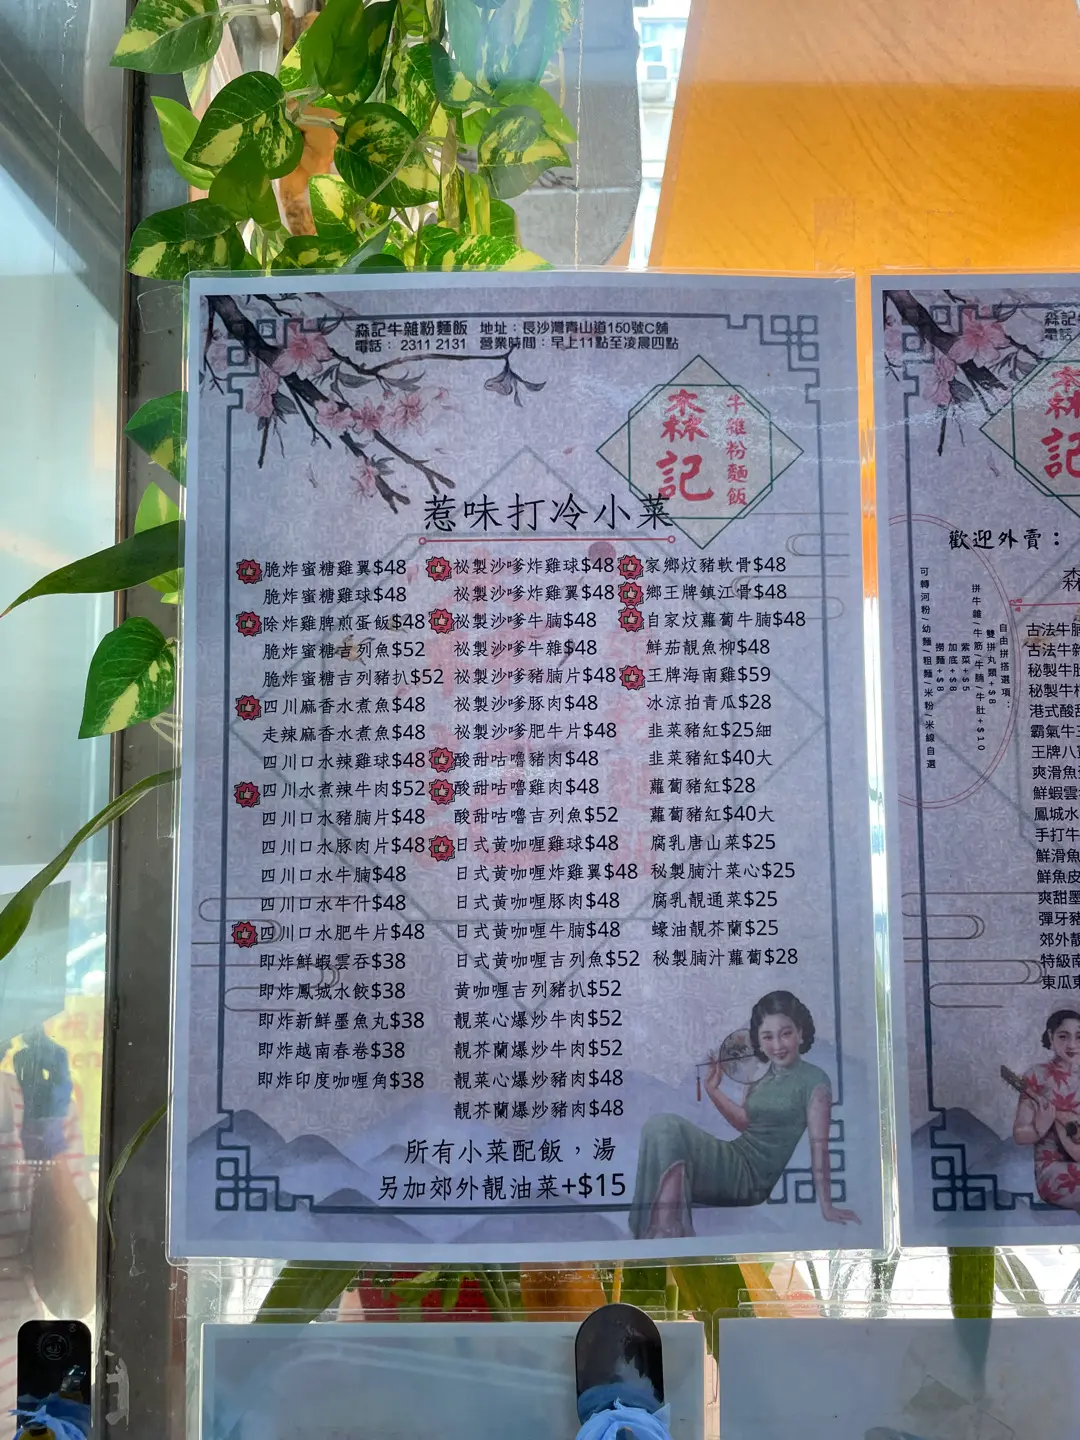 森記牛雜粉麵飯 地址：長沙灣青山道150號C舖
電話： 2311 2131 營業時間：早上11點至凌晨四點
森記
牛雜粉麵飯
惹味打冷小菜
脆炸蜜糖雞翼$48
脆炸蜜糖雞球$48
除炸雞脾煎蛋飯$48
脆炸蜜糖吉列魚$52
脆炸蜜糖吉列豬扒$52
四川麻香水煮魚$48
走辣麻香水煮魚$48
四川口水辣雞球$48
四川水煮辣牛肉$52
四川口水豬腩片$48
四川口水豚肉片$48
四川口水牛腩$48
四川口水牛什$48
四川口水肥牛片$48
即炸鮮蝦雲吞$38
即炸鳳城水餃$38
即炸新鮮墨魚丸$38
即炸越南春卷$38
即炸印度咖喱角$38
祕製沙嗲炸雞球$48
祕製沙嗲炸雞翼$48
祕製沙嗲牛腩$48
祕製沙嗲牛雜$48
祕製沙嗲豬腩片$48
祕製沙嗲豚肉$48
祕製沙嗲肥牛片$48
酸甜咕嚕豬肉$48
酸甜咕嚕雞肉$48
酸甜咕嚕吉列魚$52
日式黄咖喱雞球$48
日式黄咖喱炸雞翼$48
日式黄咖喱豚肉$48
日式黄咖喱牛腩$48
日式黄咖喱吉列魚$52
黄咖喱吉列豬扒$52
靚菜心爆炒牛肉$52
靚芥蘭爆炒牛肉$52
靚菜心爆炒豬肉$48
靚芥蘭爆炒豬肉$48
家鄉炆豬軟骨$48
鄉王牌鎮江骨$48
自家炆蘿蔔牛腩$48
鮮茄靚魚柳$48
王牌海南雞$59
冰涼拍青瓜$28
韭菜豬紅$25細
韭菜豬紅$40大
蘿蔔豬紅$28
蘿蔔豬紅$40大
腐乳唐山菜$25
秘製腩汁菜心$25
腐乳靚通菜$25
蠔油靚芥蘭$25
秘製腩汁蘿蔔$28
所有小菜配飯，湯
另加郊外靚油菜+$15
森記
歡迎外賣：
自由拼搭選項：
雙拼丸類+$8
拼牛雜/牛筋/牛腩/牛肚+$10
紫菜+$5
加底+$8
撈麵+$8
可轉河粉/幼麵/粗麵/米粉/米線自選
古法牛腩
古法牛雜
秘製牛肚
秘製牛
港式酸
霸氣牛
王牌八
爽滑魚
鮮蝦雲
鳳城水
手打牛
鮮滑魚
鮮魚皮
爽甜墨
彈牙豬
郊外靚
特級南
東瓜東